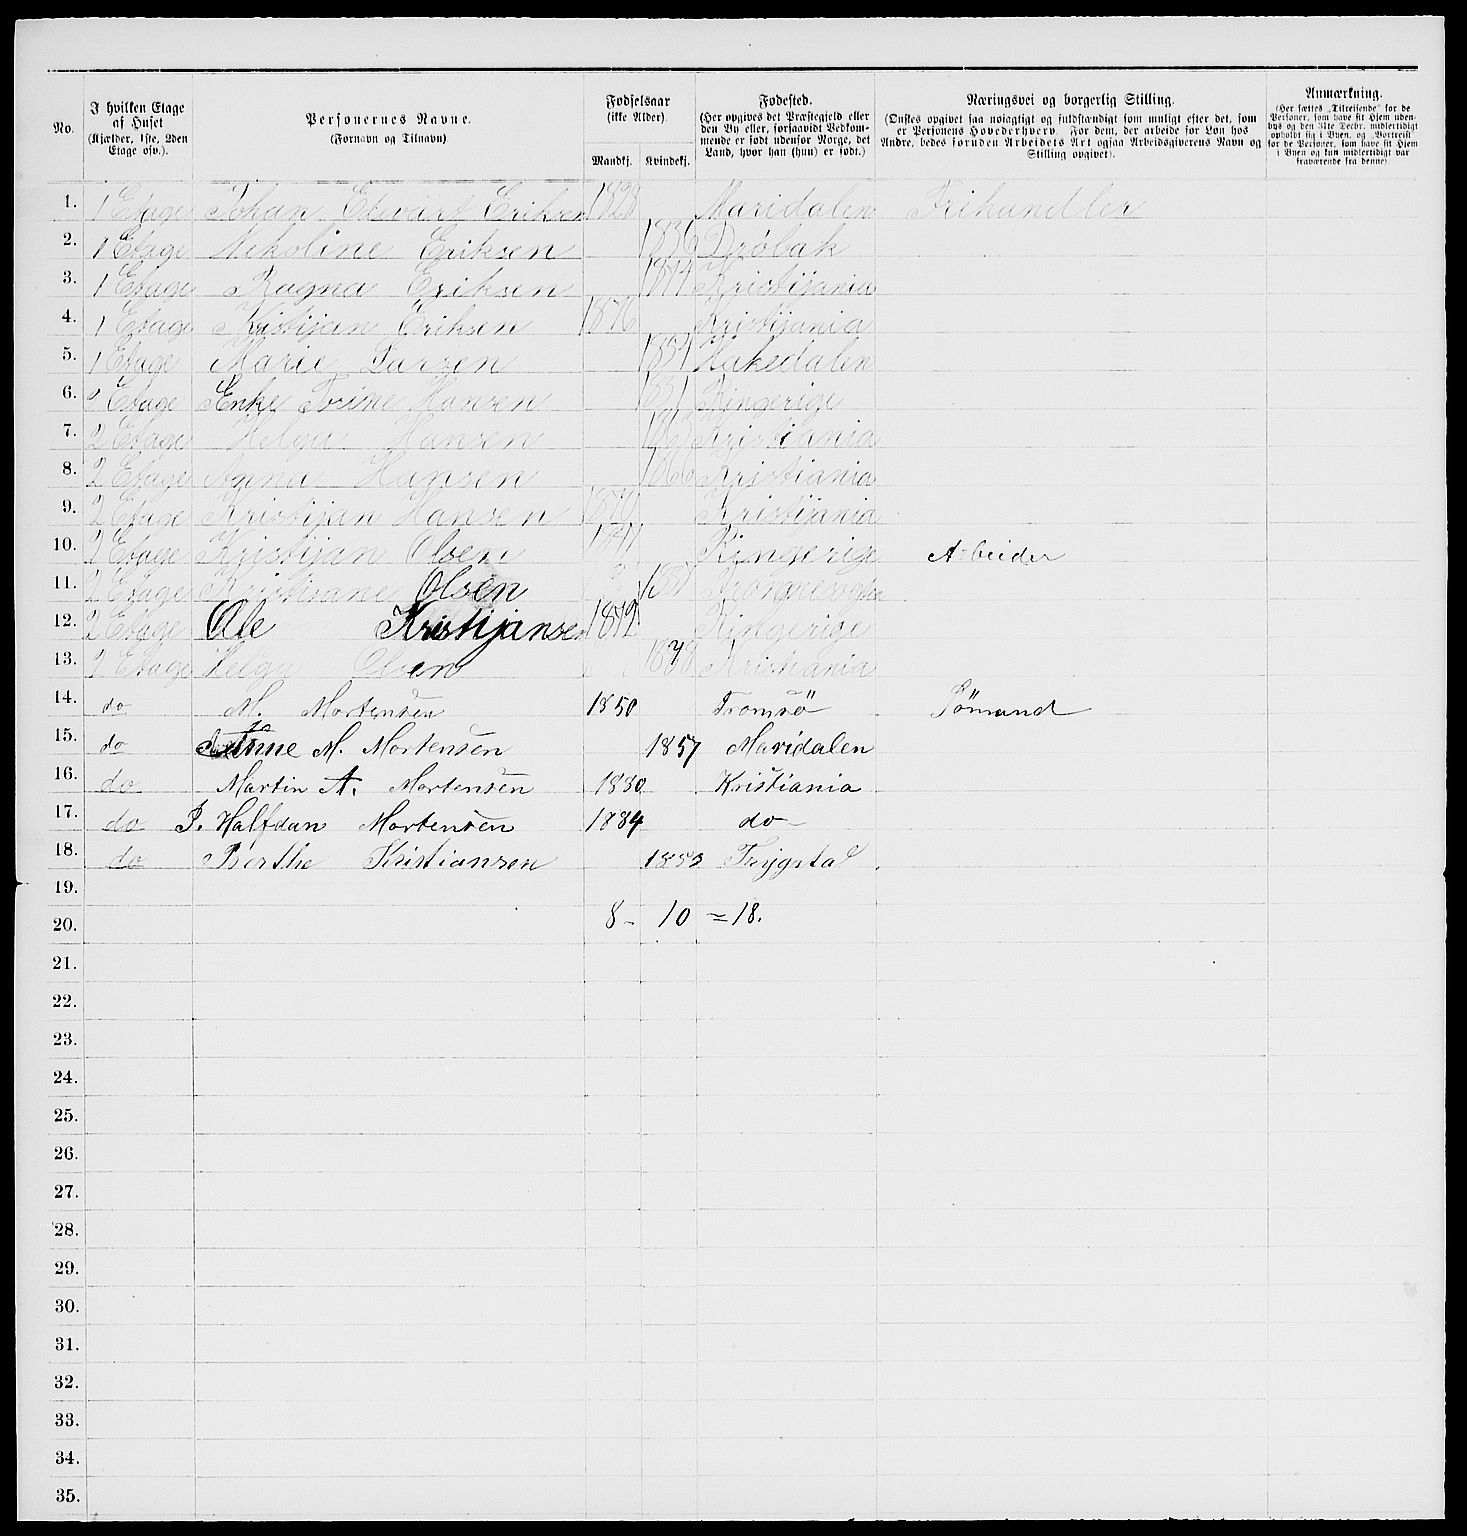 No.
I hvilken Etage af Huset (Kjælder, 1ste, 2den Etage osv.).
Personernes Navne. (Fornavn og Tilnavn).
Fødselsaar (ikke Alder).
Mandkj. Kvindekj.
Fødested. (Her opgives det Præstegjeld eller den By eller, forsaavidt Vedkommende er født udenfor Norge, det Land, hvor han (hun) er født.)
Næringsvei og borgerlig Stilling. (Ønskes opgivet saa nøiagtigt og fuldstændigt som muligt efter det, som er Personens Hovederhverv. For dem, der arbeide for Løn hos Andre, bedes foruden Arbeidets Art ogsaa Arbeidsgiverens Navn og Stilling opgivet).
Anmærkning. (Her sættes „Tilreisende" for de Personer, som have sit Hjem udenbys og den 31te Decbr. midlertidigt opholdt sig i Byen, og „Bortreist" for de Personer, som have sit Hjem i Byen og kun midlertidigt var fraværende fra denne)
1. 1 Etage Johan Edvart Eriksen 1828 Maridalen Frihandler
2. 1 Etage Nikoline Eriksen 1836 Drøbak
3. 1 Etage Ragna Eriksen 1874 Kristijania
4. 1 Etage Kristijan Eriksen 1876 Kristijania
5. 1 Etage Marie Larsen Hakedalen
6. Etage Enke Trine Hansen 1831 Ringerige
7. 2 Etage Helga Hansen Kristiania
8. 2 Etage Agna Hansen 1866 Kristiania
9. 2 Etage Kristijan Hansen 1870 Kristijania
10. 2 Etage Kristijan Olsen Ringerige Arbeider
11. 2 Etage Kristiane Olsen
12. 2 Etage Ole Kristijansen 1872 Ringerige
13. 2 Etage Helga Olsen 1878 Kristiania
14. do M. Mortensen 1850 Tromsø Sömand
15. do Anne M. Mortensen 1857 Maridalen
16. do Martin A. Mortensen 1880 Kristiania
17. do P. Halfdan Mortensen 1884 do
18. do Berthe Kristiansen 1853 Trygstad
19.
8 - 10 = 18.
20.
21.
22.
23.
24.
25.
26.
27.
28.
29.
30.
31.
32.
33.
34.
35.